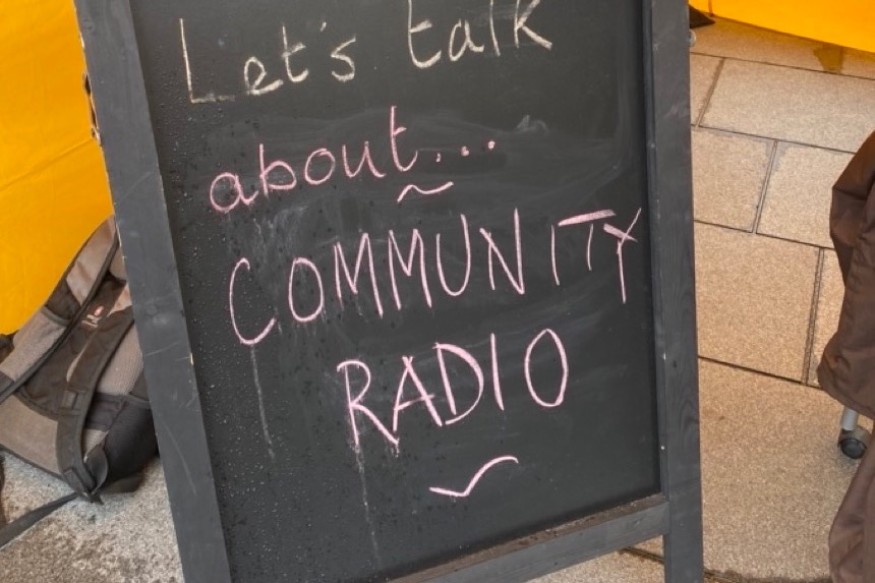 Let's talk
about...
COMMUNITY
RADIO